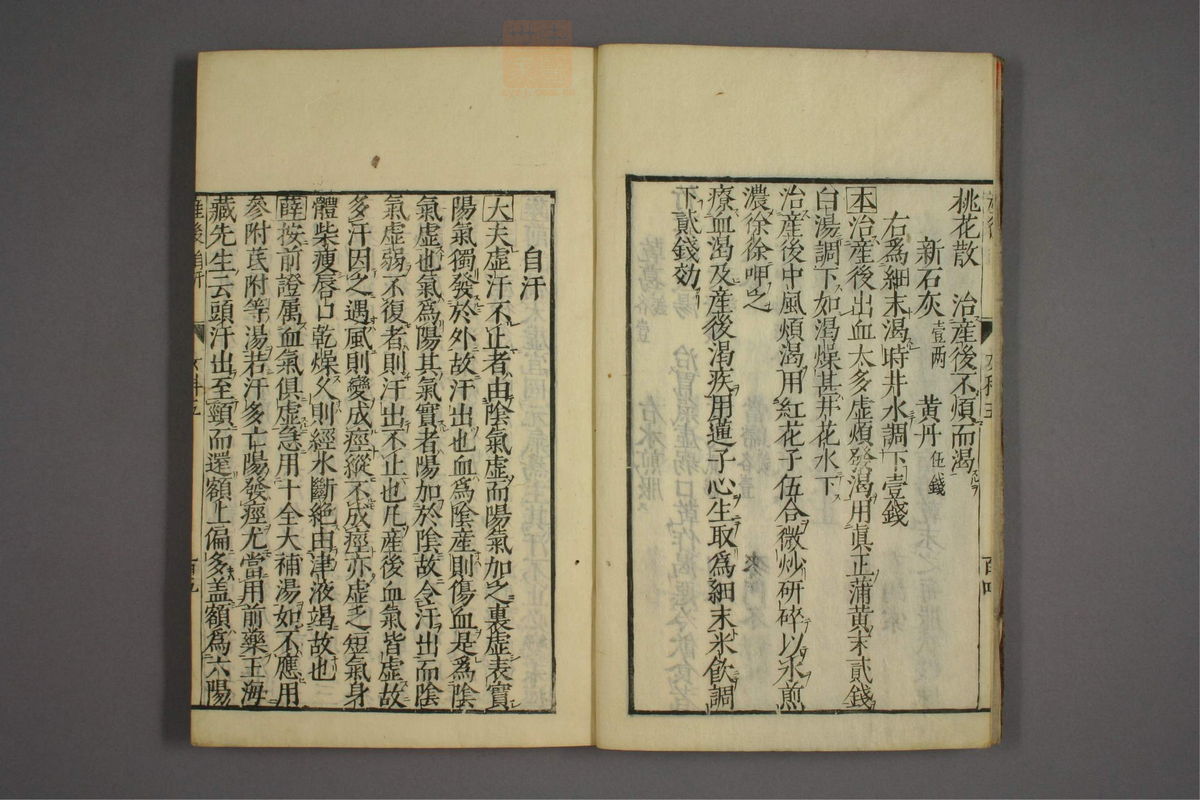 桃花散　治產後不煩而渴
新石灰壹两　黄丹伍錢
右爲細末渴時井水調下壹錢
本治產後出血太多虛煩發渴用眞正蒲黄末貳錢
白湯調下如渴燥甚井花水下
治產後中風煩渴用紅花子伍合微炒研碎以水煎
濃徐徐呷之
療血渴及產後渴疾用蓮子心生取爲細末米飲調
下貳錢効
自汗
大夫虛汗不止者由陰氣虛而陽氣加之裏虛表實
陽氣獨發於外故汗出也血爲陰產則傷血是爲陰
氣虛也氣爲陽其氣實者陽加於陰故令汗出而陰
氣虛弱不復者則汗出不止也凡產後血氣皆虛故
多汗因之遇風則變成痙縱不成痙亦虛乏短氣身
體柴瘦唇口乾燥久則經水斷絕由津液竭故也
薛按前證属血氣俱虛急用十全大補湯如不應用
參附芪附等湯若汗多亡陽發痙尤當用前藥王海
藏先生云頭汗出至頸而還額上偏多盖額爲六陽